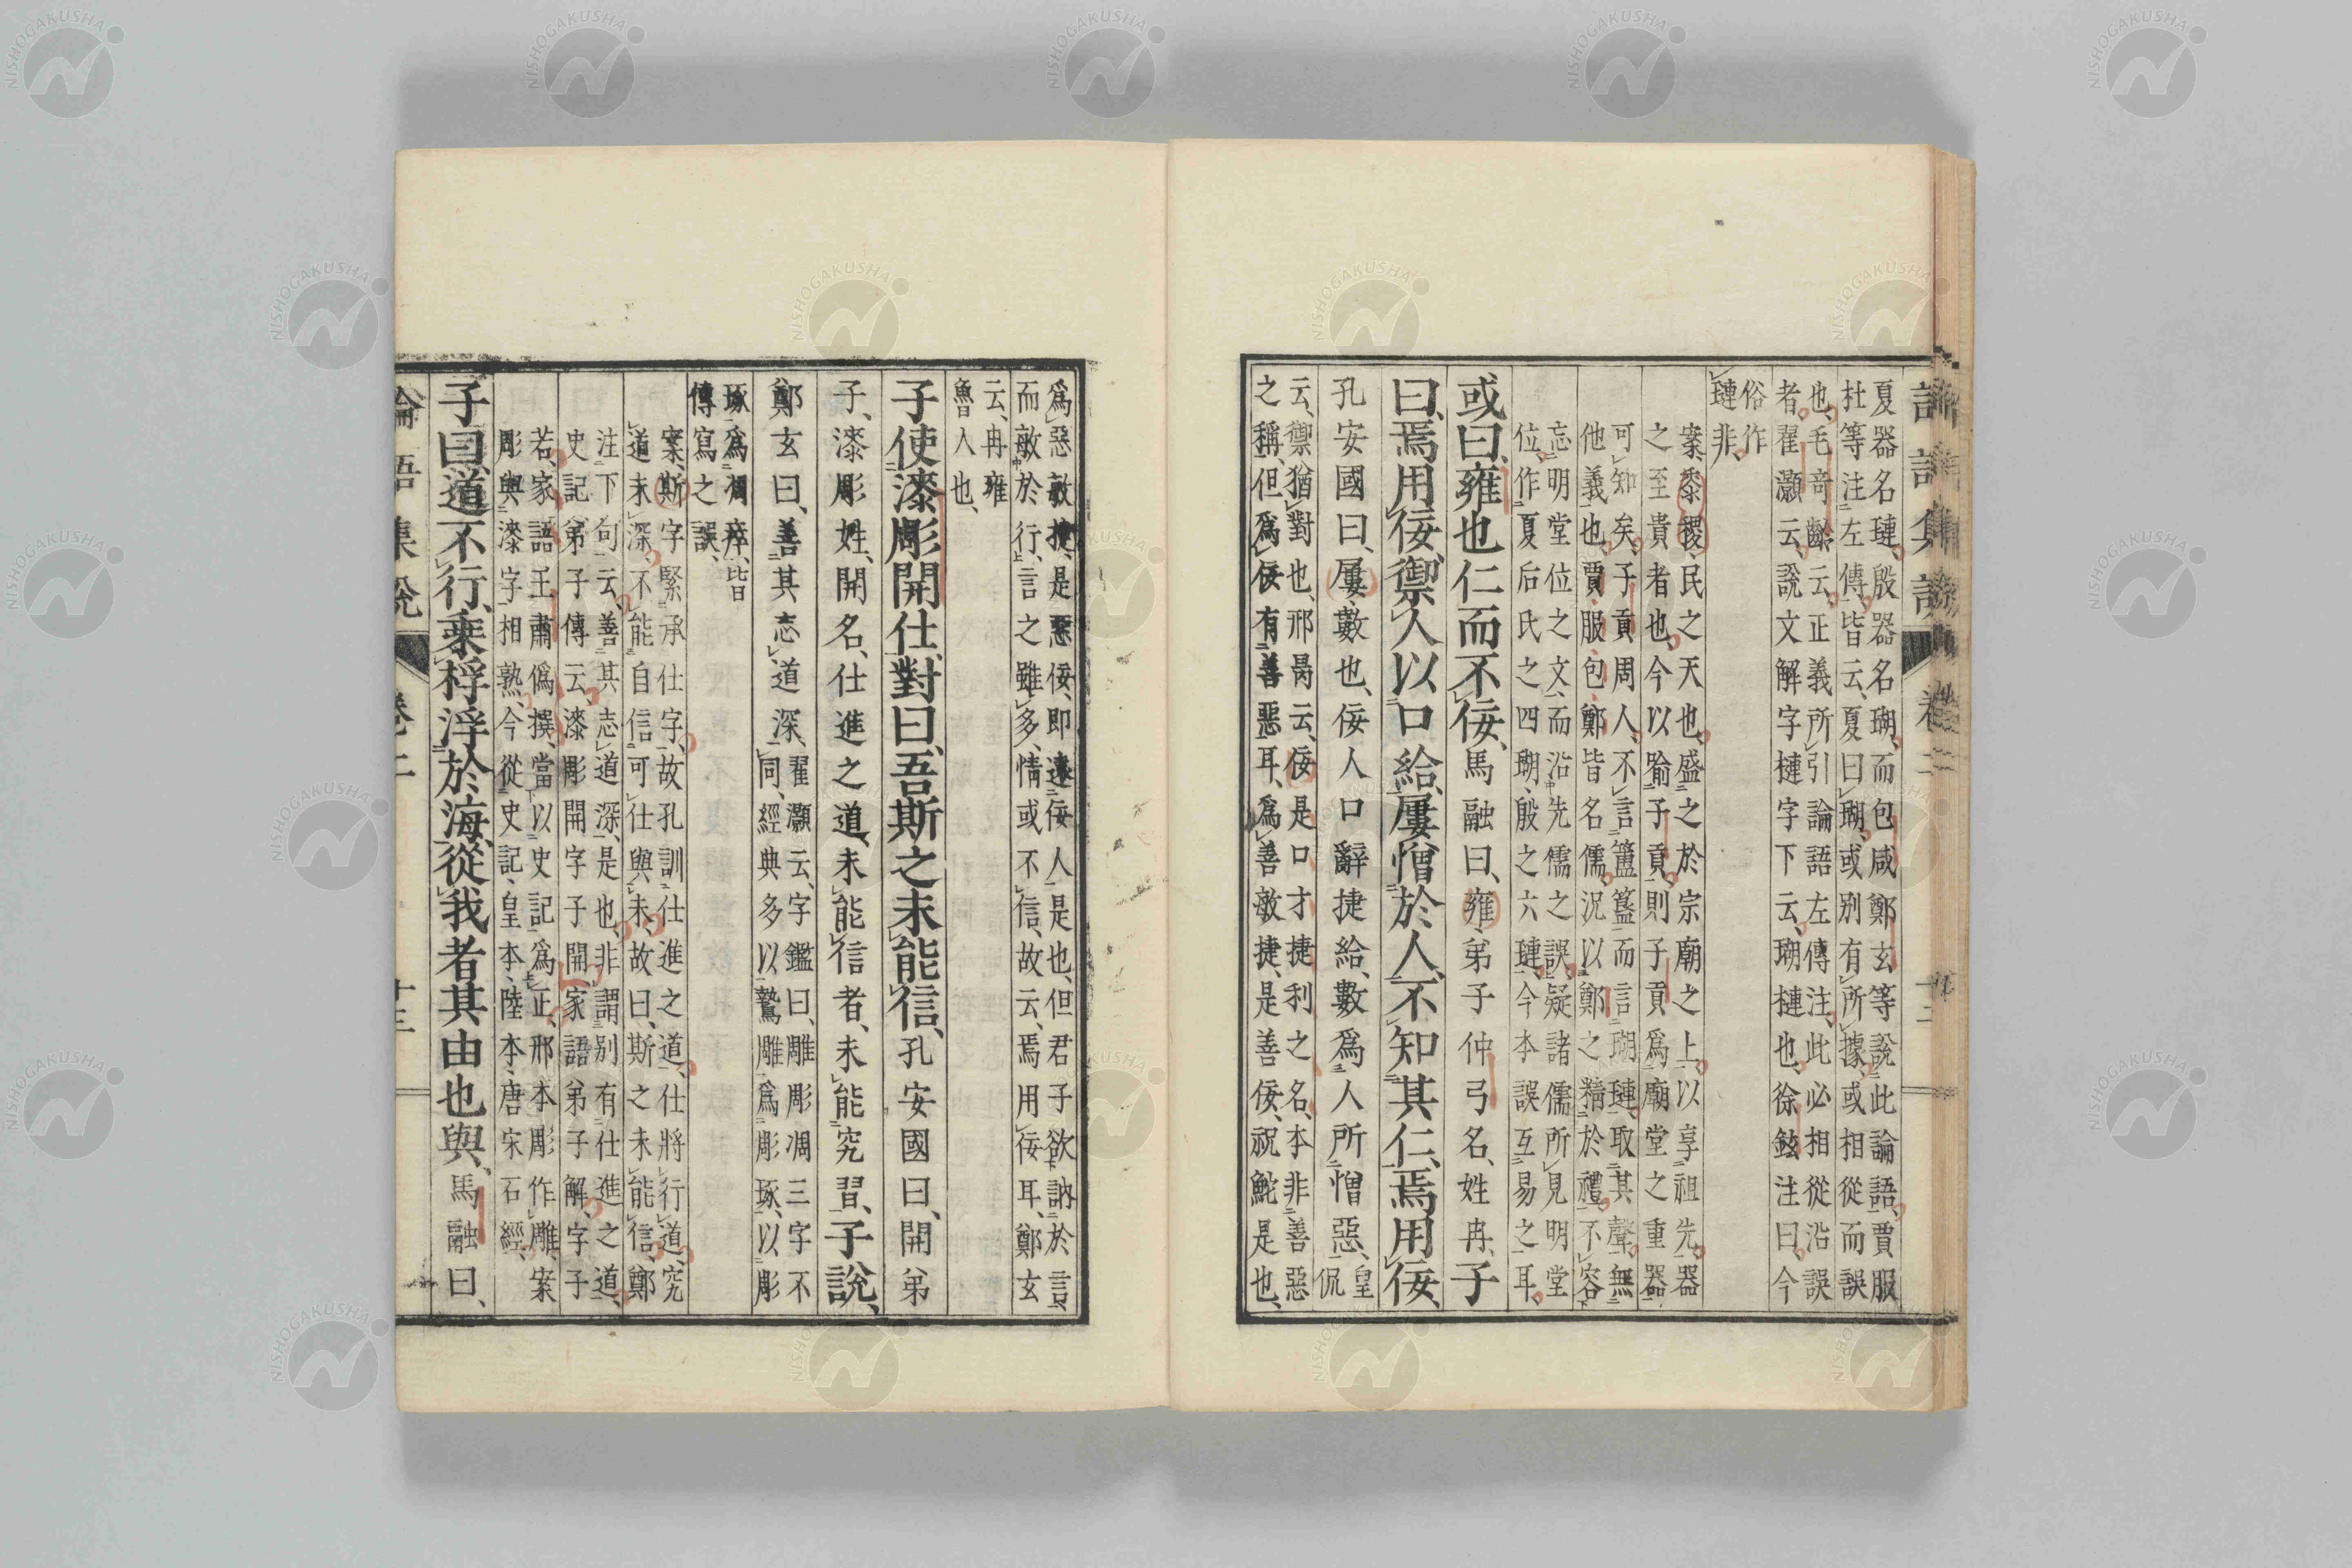 論語集說 卷二 十二
夏器名璉、殷器名瑚、而包咸鄭玄等說此論語、賈服
杜等注左傳、皆云、夏曰瑚、或別有所據、或相從而誤
也、毛奇齡云、正義所引論語左傳注、此必相從沿誤
者、翟灝云、說文解字槤字下云、瑚槤也、徐鉉注曰、今
俗作
璉非、
案、黍稷、民之天也、盛之於宗廟之上、以享祖先、器
之至貴者也、今以喻子貢、則子貢爲廟堂之重器
可知矣、子貢周人、不言簠簋、而言瑚璉、取其聲、無
他義也、賈服包鄭皆名儒、況以鄭之精於禮、不容
忘明堂位之文、而沿先儒之誤、疑諸儒所見明堂
位、作夏后氏之四瑚、殷之六璉、今本誤互易之耳、
或曰、雍也仁而不佞、馬融曰、雍、弟子仲弓名、姓冉、子
曰、焉用佞、禦人以口給、屢憎於人、不知其仁、焉用佞、
孔安國曰、屢、數也、佞人口辭捷給、數爲人所憎惡、皇侃
云、禦猶對也、邢昺云、佞是口才捷利之名、本非善惡
之稱、但爲佞有善惡耳、爲善敏捷、是善佞、祝鮀是也、
爲惡敏捷、是惡佞、即遠佞人是也、但君子欲訥於言、
而敏於行、言之雖多、情或不信、故云、焉用佞耳、鄭玄
云、冉雍
魯人也、
子使漆彫開仕、對曰、吾斯之未能信、孔安國曰、開、弟
子、漆彫姓、開名、仕進之道、未能信者、未能究習、子說、
鄭玄曰、善其志、道深、翟灝云、字鑑曰、雕彫凋三字不
同、經典多以鷙雕爲彫琢、以彫
琢爲凋瘁、皆
傳寫之誤、
案、斯字緊承仕字、故孔訓仕進之道、仕將行道、究
道未深、不能自信可仕與未、故曰、斯之未能信、鄭
注下句云、善其志道深、是也、非謂別有仕進之道、
史記弟子傳云、漆彫開字子開、家語弟子解、字子
若、家語王肅僞撰、當以史記爲正、邢本彫作雕、案
彫與漆字相熟、今從史記、皇本、陸本、唐宋石經、
子曰、道不行、乘桴浮於海、從我者其由也與、馬融曰、
論語集說 卷二 十三